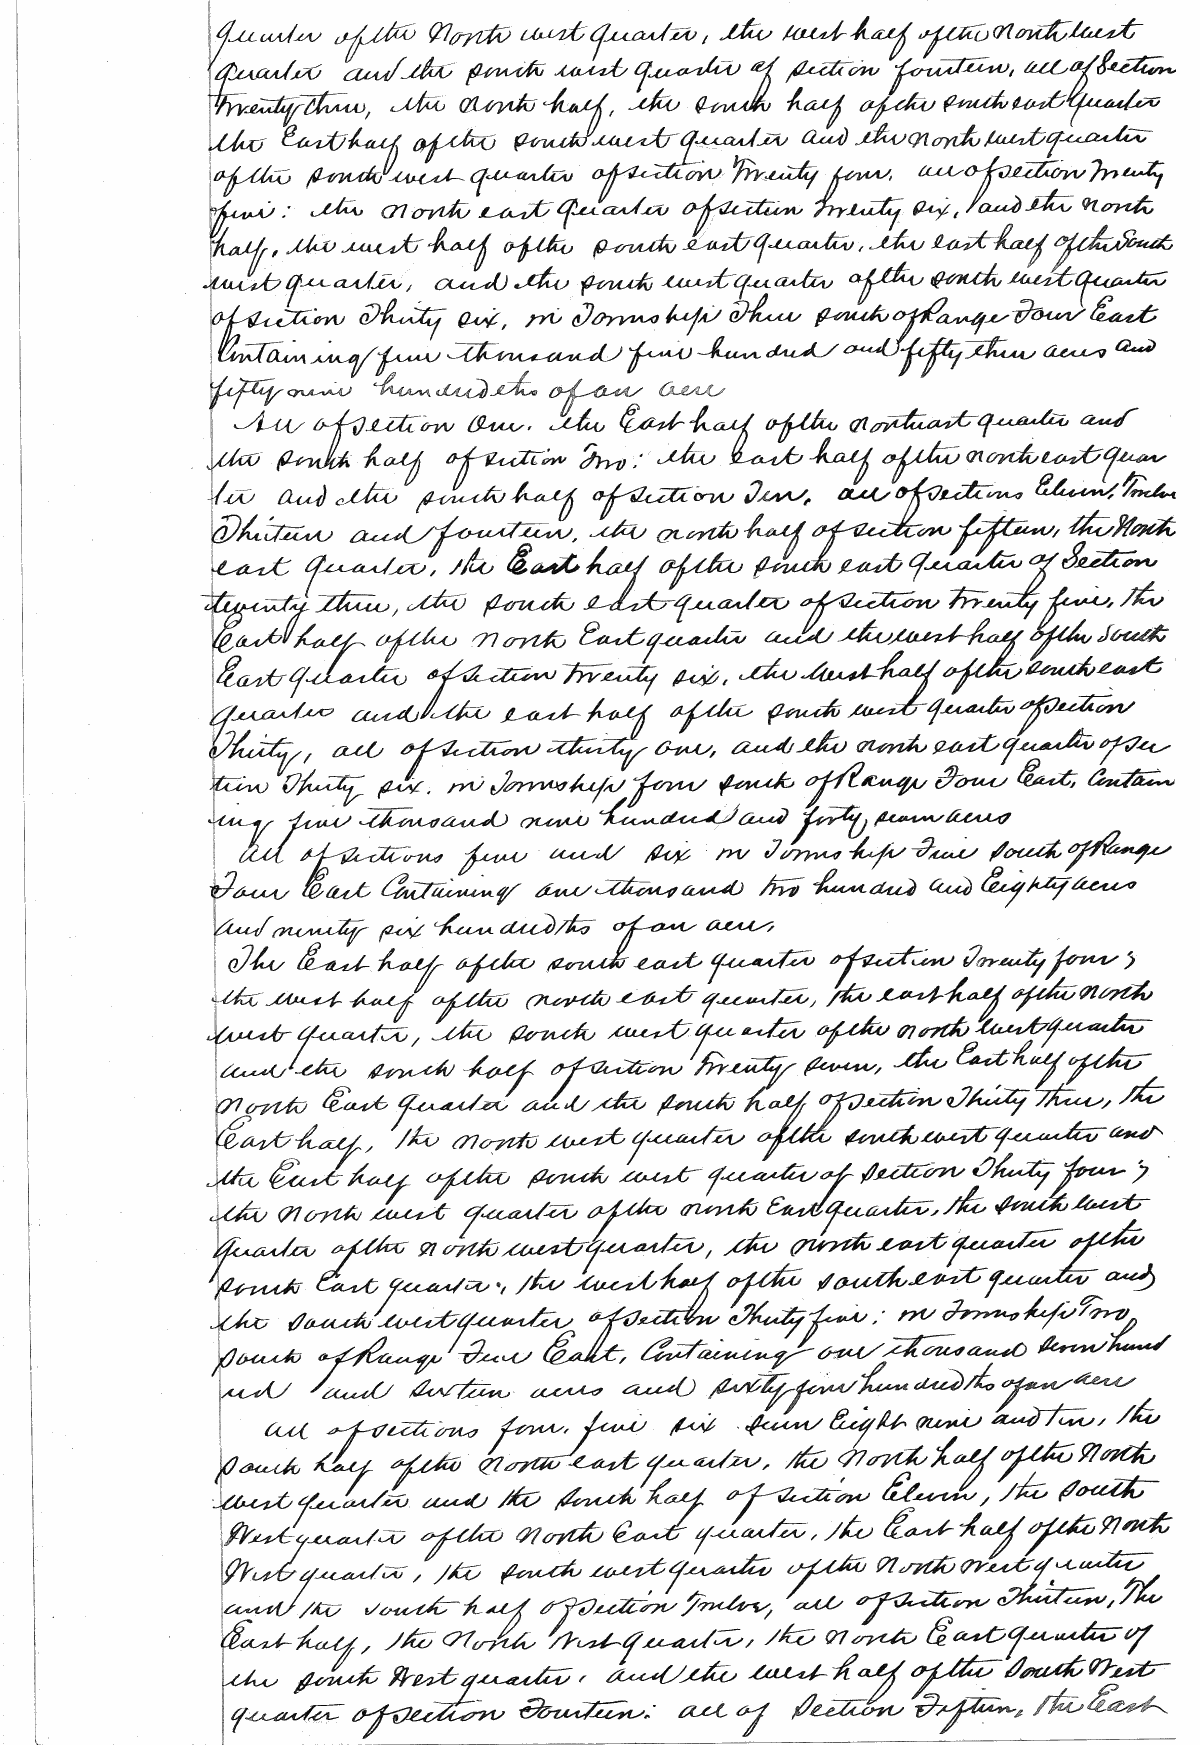 quarter of the North west quarter, the west half of the North West
quarter and the south west quarter of section fourteen, all of Section
Twenty three, the North half, the south half of the south east quarter
the East half of the south west quarter and the North west quarter
of the south west quarter of section Twenty four, all of section Twenty
five: the North east quarter of section Twenty six, and the North
half, the west half of the south east quarter, the east half of the South
west quarter, and the south west quarter of the south west quarter
of section Thirty six, in Township Three south of Range Four East
Containing five thousand five hundred and fifty three acres and
fifty nine hundredths of an acre
All of section One, the East half of the northeast quarter and
the south half of section Two: the east half of the north east quar
ter and the south half of section Ten, all of sections Eleven, Twelve
Thirteen and fourteen, the north half of section fifteen, the North
east quarter, the East half of the south east quarter of Section
twenty three, the south east quarter of section twenty five, the
East half of the North East quarter and the west half of the South
East quarter of section twenty six, the West half of the south east
quarter and the east half of the south west quarter of section
Thirty, all of section thirty one, and the north east quarter of sec
tion Thirty six, in Township four south of Range Four East, Contain
ing five thousand nine hundred and forty seven acres
All of sections five and six in Township Five South of Range
Four East Containing one thousand two hundred and Eighty acres
and ninety six hundredths of an acre,
The East half of the south east quarter of section Twenty four;
the west half of the north east quarter, the east half of the North
west quarter, the south west quarter of the North West quarter
and the south half of section Twenty seven, the East half of the
North East quarter and the south half of section Thirty Three, the
East half, the north west quarter of the south west quarter and
the East half of the south west quarter of section Thirty four;
the North west quarter of the north East quarter, the south west
quarter of the north west quarter, the north east quarter of the
south East quarter, the west half of the south east quarter and
the south west quarter of section Thirty five; in Township Two
south of Range Five East, Containing one thousand seven hund
red and sixteen acres and sixty four hundredths of an acre
All of sections four, five six seven Eight nine and Ten, the
South half of the North east quarter, the North half of the North
west quarter and the south half of section Eleven, the South
West quarter of the North East quarter, the East half of the North
West quarter, the south west quarter of the North West quarter
and the south half of section Twelve, all of section Thirteen, The
East half, the North West quarter, the North East quarter of
the south West quarter, and the west half of the South West
quarter of section Fourteen: all of Section Fifteen, the East